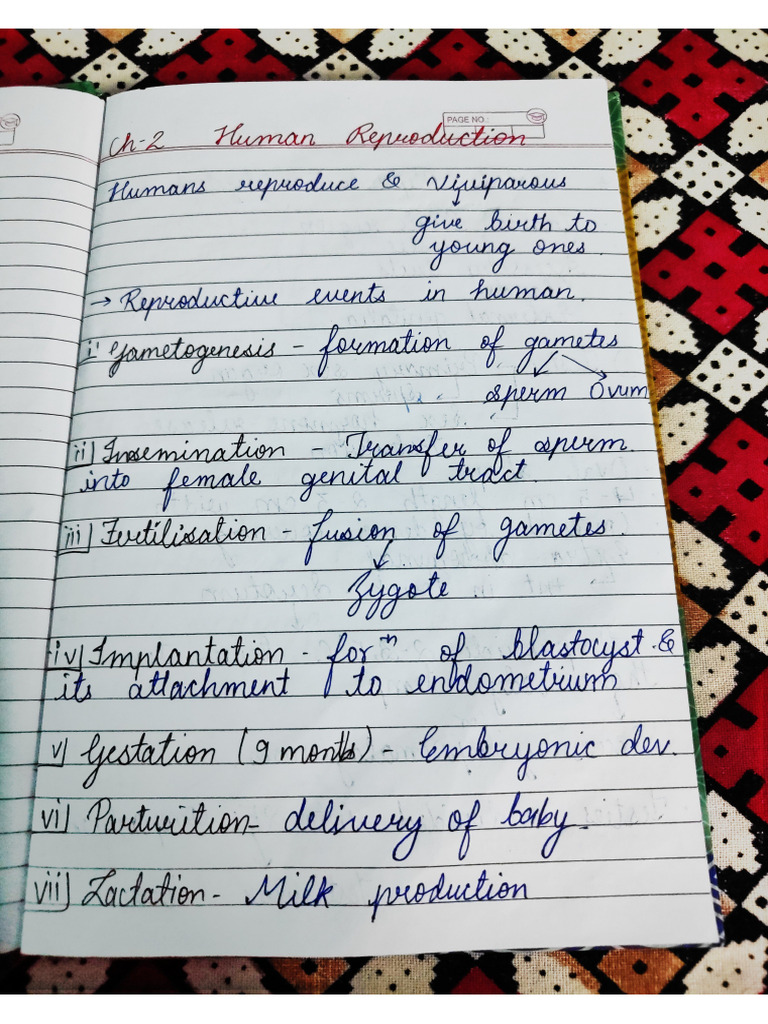 PAGE NO.:
Ch-2 Human Reproduction
Humans reproduce & Viviparous
give birth to
young ones.
→ Reproductive events in human.
i) Gametogenesis - formation of gametes
sperm Ovum
ii) Insemination - Transfer of sperm
into female genital tract.
iii) Fertilisation - fusion of gametes.
Zygote
iv) Implantation - forⁿ of blastocyst &
its attachment to endometrium
v) Gestation (9 months) - Embryonic dev.
vi) Parturition - delivery of baby.
vii) Lactation - Milk production